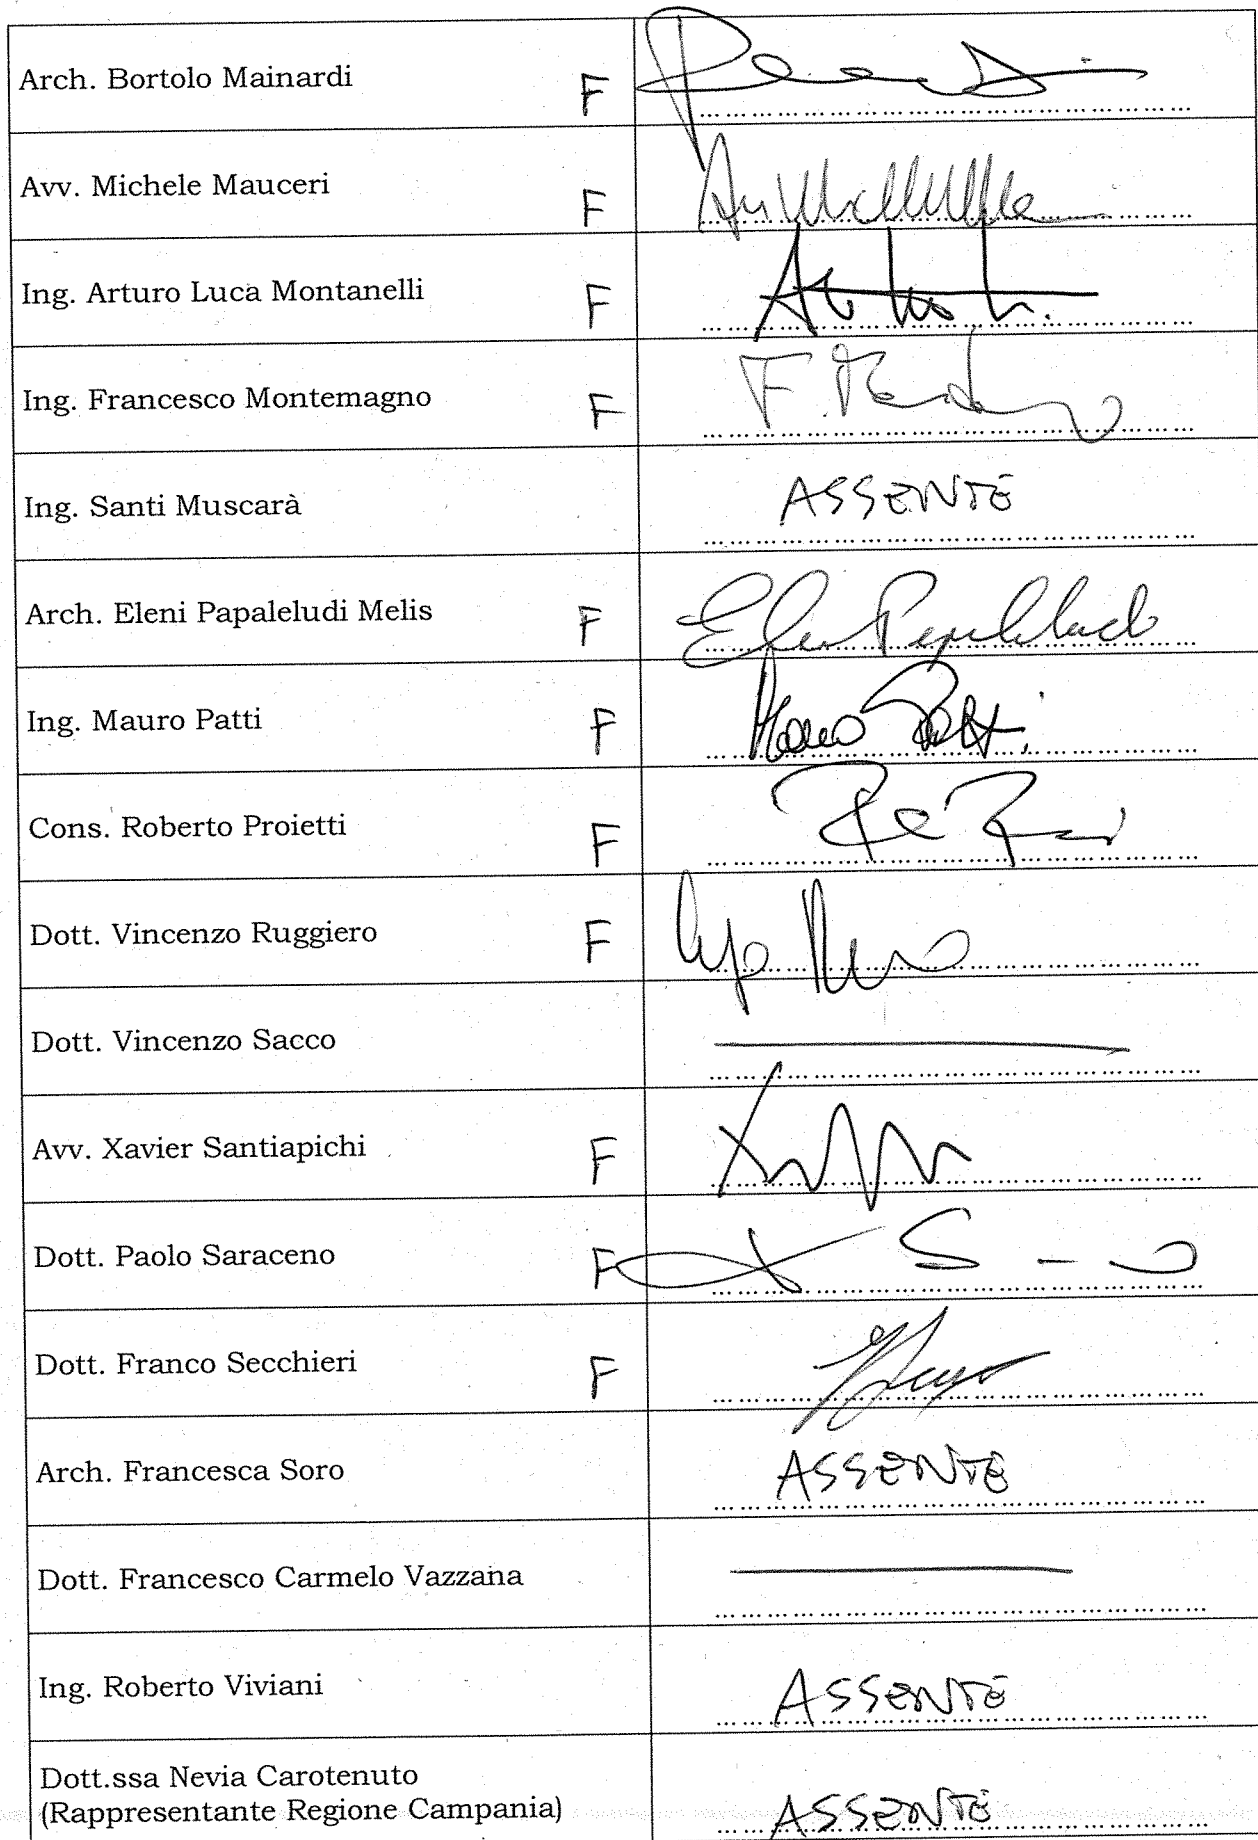 Arch. Bortolo Mainardi F
Avv. Michele Mauceri F
Ing. Arturo Luca Montanelli F
Ing. Francesco Montemagno F
Ing. Santi Muscarà ASSENTE
Arch. Eleni Papaleludi Melis F
Ing. Mauro Patti F Mauro Patti
Cons. Roberto Proietti F
Dott. Vincenzo Ruggiero F
Dott. Vincenzo Sacco
Avv. Xavier Santiapichi F
Dott. Paolo Saraceno F
Dott. Franco Secchieri F
Arch. Francesca Soro ASSENTE
Dott. Francesco Carmelo Vazzana
Ing. Roberto Viviani ASSENTE
Dott.ssa Nevia Carotenuto
(Rappresentante Regione Campania) ASSENTE